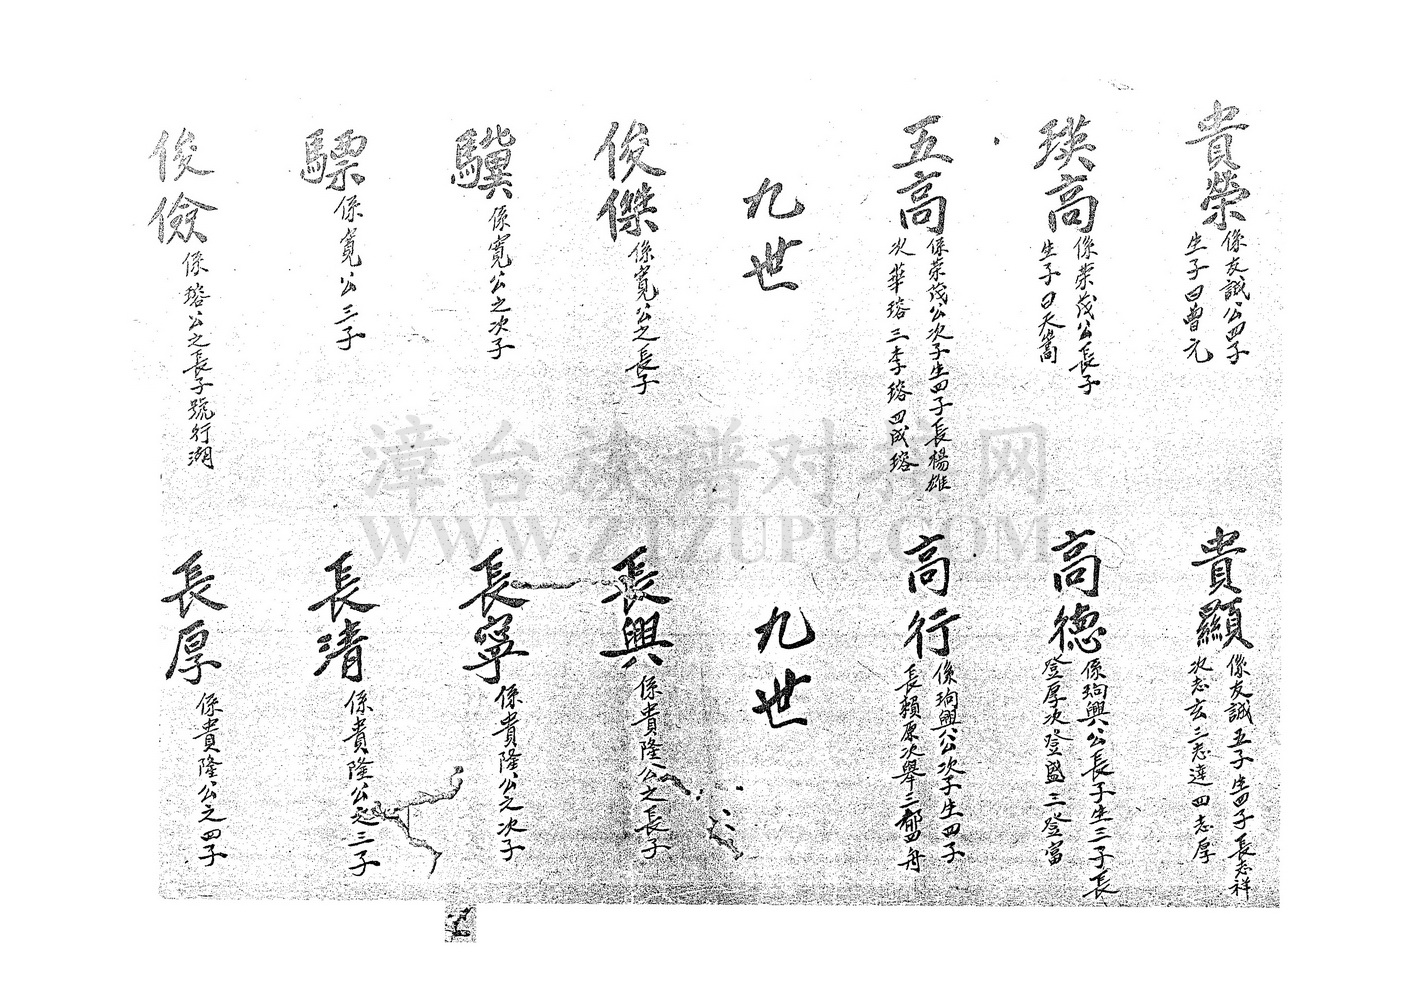 貴榮
係友誠公四子
生子曰曽元
瑛高
係荣茂公長子
生子曰天嵩
五高
係荣茂公次子生四子長楊雄
次華瑢三李瑢四成瑢
九世
俊傑
係寛公之長子
驥
係寛公之次子
驃
係寛公三子
俊儉
係瑢公之長子號行湖
貴顯
係友誠五子生四子長志祥
次志玄三志達四志厚
高德
係珣興公長子生三子長
登厚次登盛三登富
高行
係珣興公次子生四子
長賴原次舉三郁四舟
九世
長興
係貴隆公之長子
長寧
係貴隆公之次子
長清
係貴隆公之三子
長厚
係貴隆公之四子
漳台族谱对接网
WWW.ZTZUPU.COM